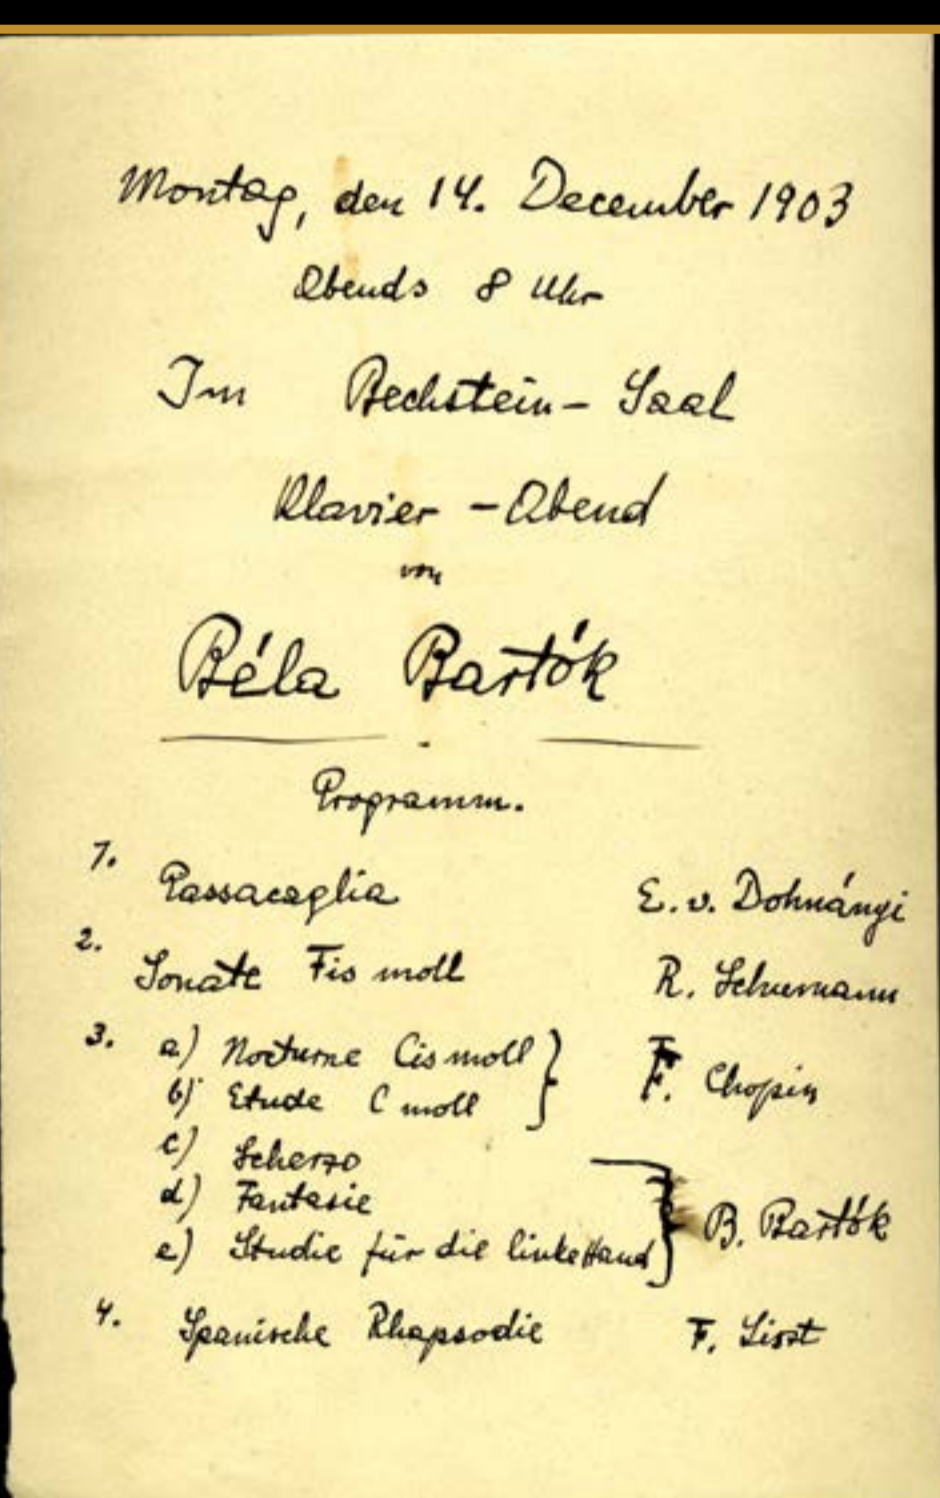 Montag, den 14. December 1903
Abends 8 Uhr
Im Bechstein-Saal
Klavier-Abend
von
Béla Bartók
Programm.
1. Passacaglia E. v. Dohnányi
2. Sonate Fis moll R. Schumann
3. a) Nocturne Cis moll } F. Chopin
b) Etude C moll
c) Scherzo
d) Fantasie } B. Bartók
e) Studie für die linke Hand
4. Spanische Rhapsodie F. Liszt